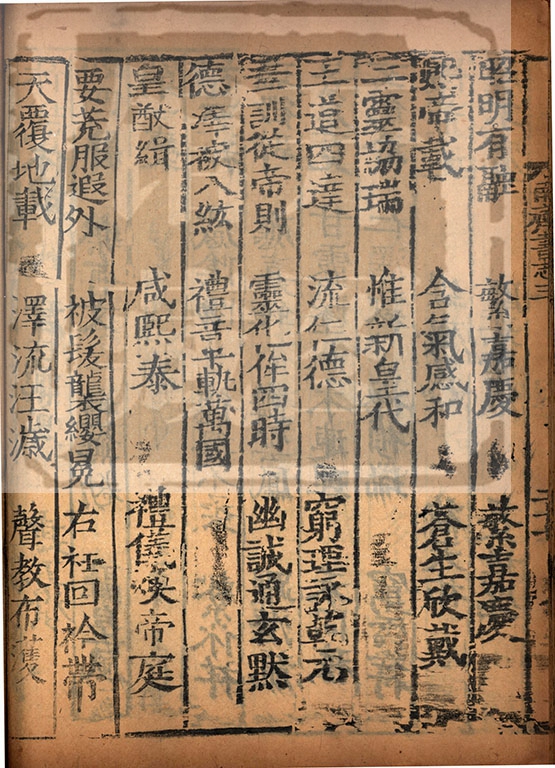 南齊書志三
明有融 繁嘉慶 繁嘉慶
熙帝載 含氣感和 蒼生欣戴
三靈協瑞 惟新皇代
王道四達 流仁德 窮理詠乾元
垂訓從帝則 靈化侔四時 幽誠通玄默
德澤被八紘 禮章軌萬國
皇猷緝 咸熙泰 禮儀煥帝庭
要荒服遐外 被髮襲纓冕 右衽回衿帶
天覆地載 澤流汪濊 聲教布濩